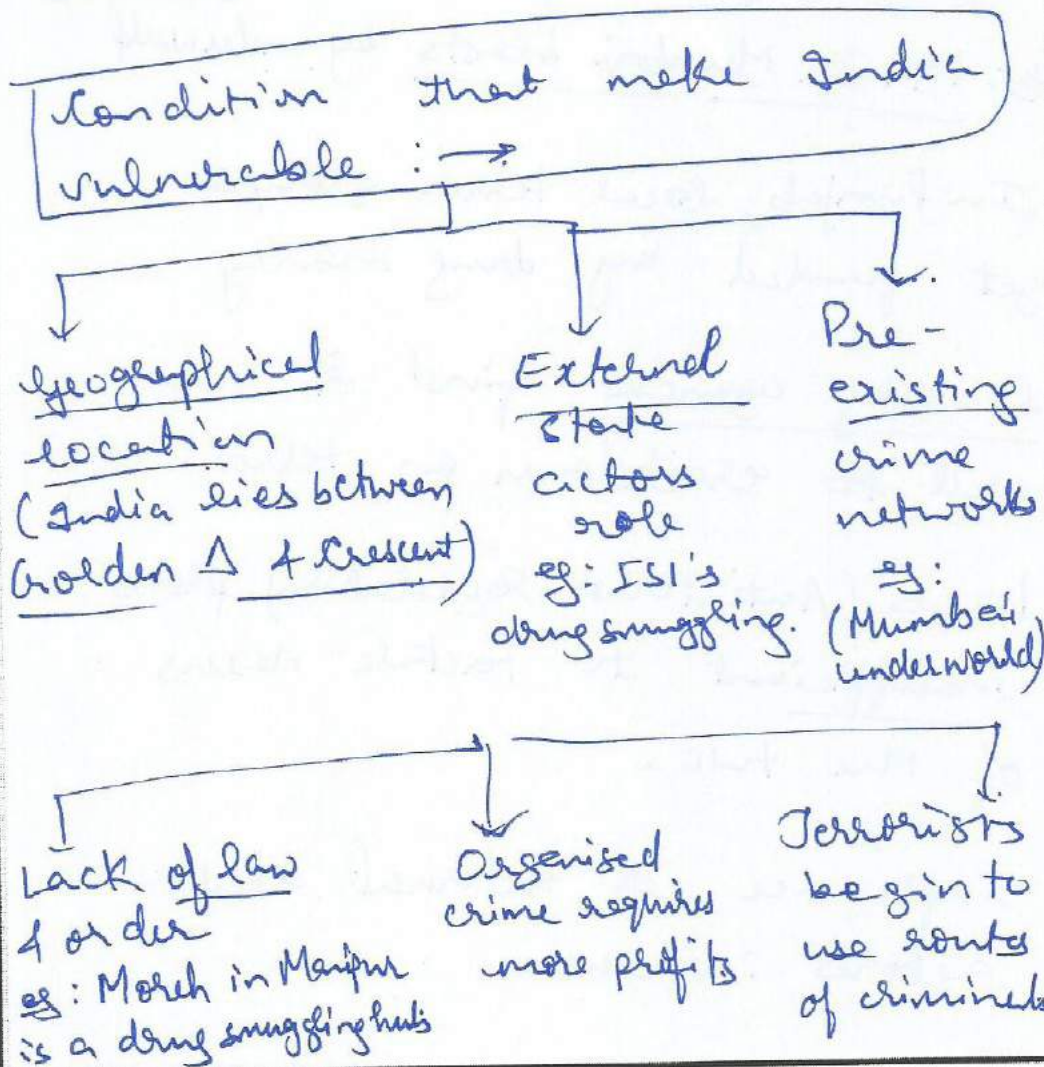 Condition that make India
vulnerable : →
Geographical
location
(India lies between
Golden Δ & Crescent)
External
state
actors
role
eg: ISI's
drug smuggling.
Pre-
existing
crime
networks
eg:
(Mumbai
underworld)
Lack of law
& order
eg: Moreh in Manipur
is a drug smuggling hub
Organised
crime requires
more profits
Terrorists
begin to
use routes
of criminals